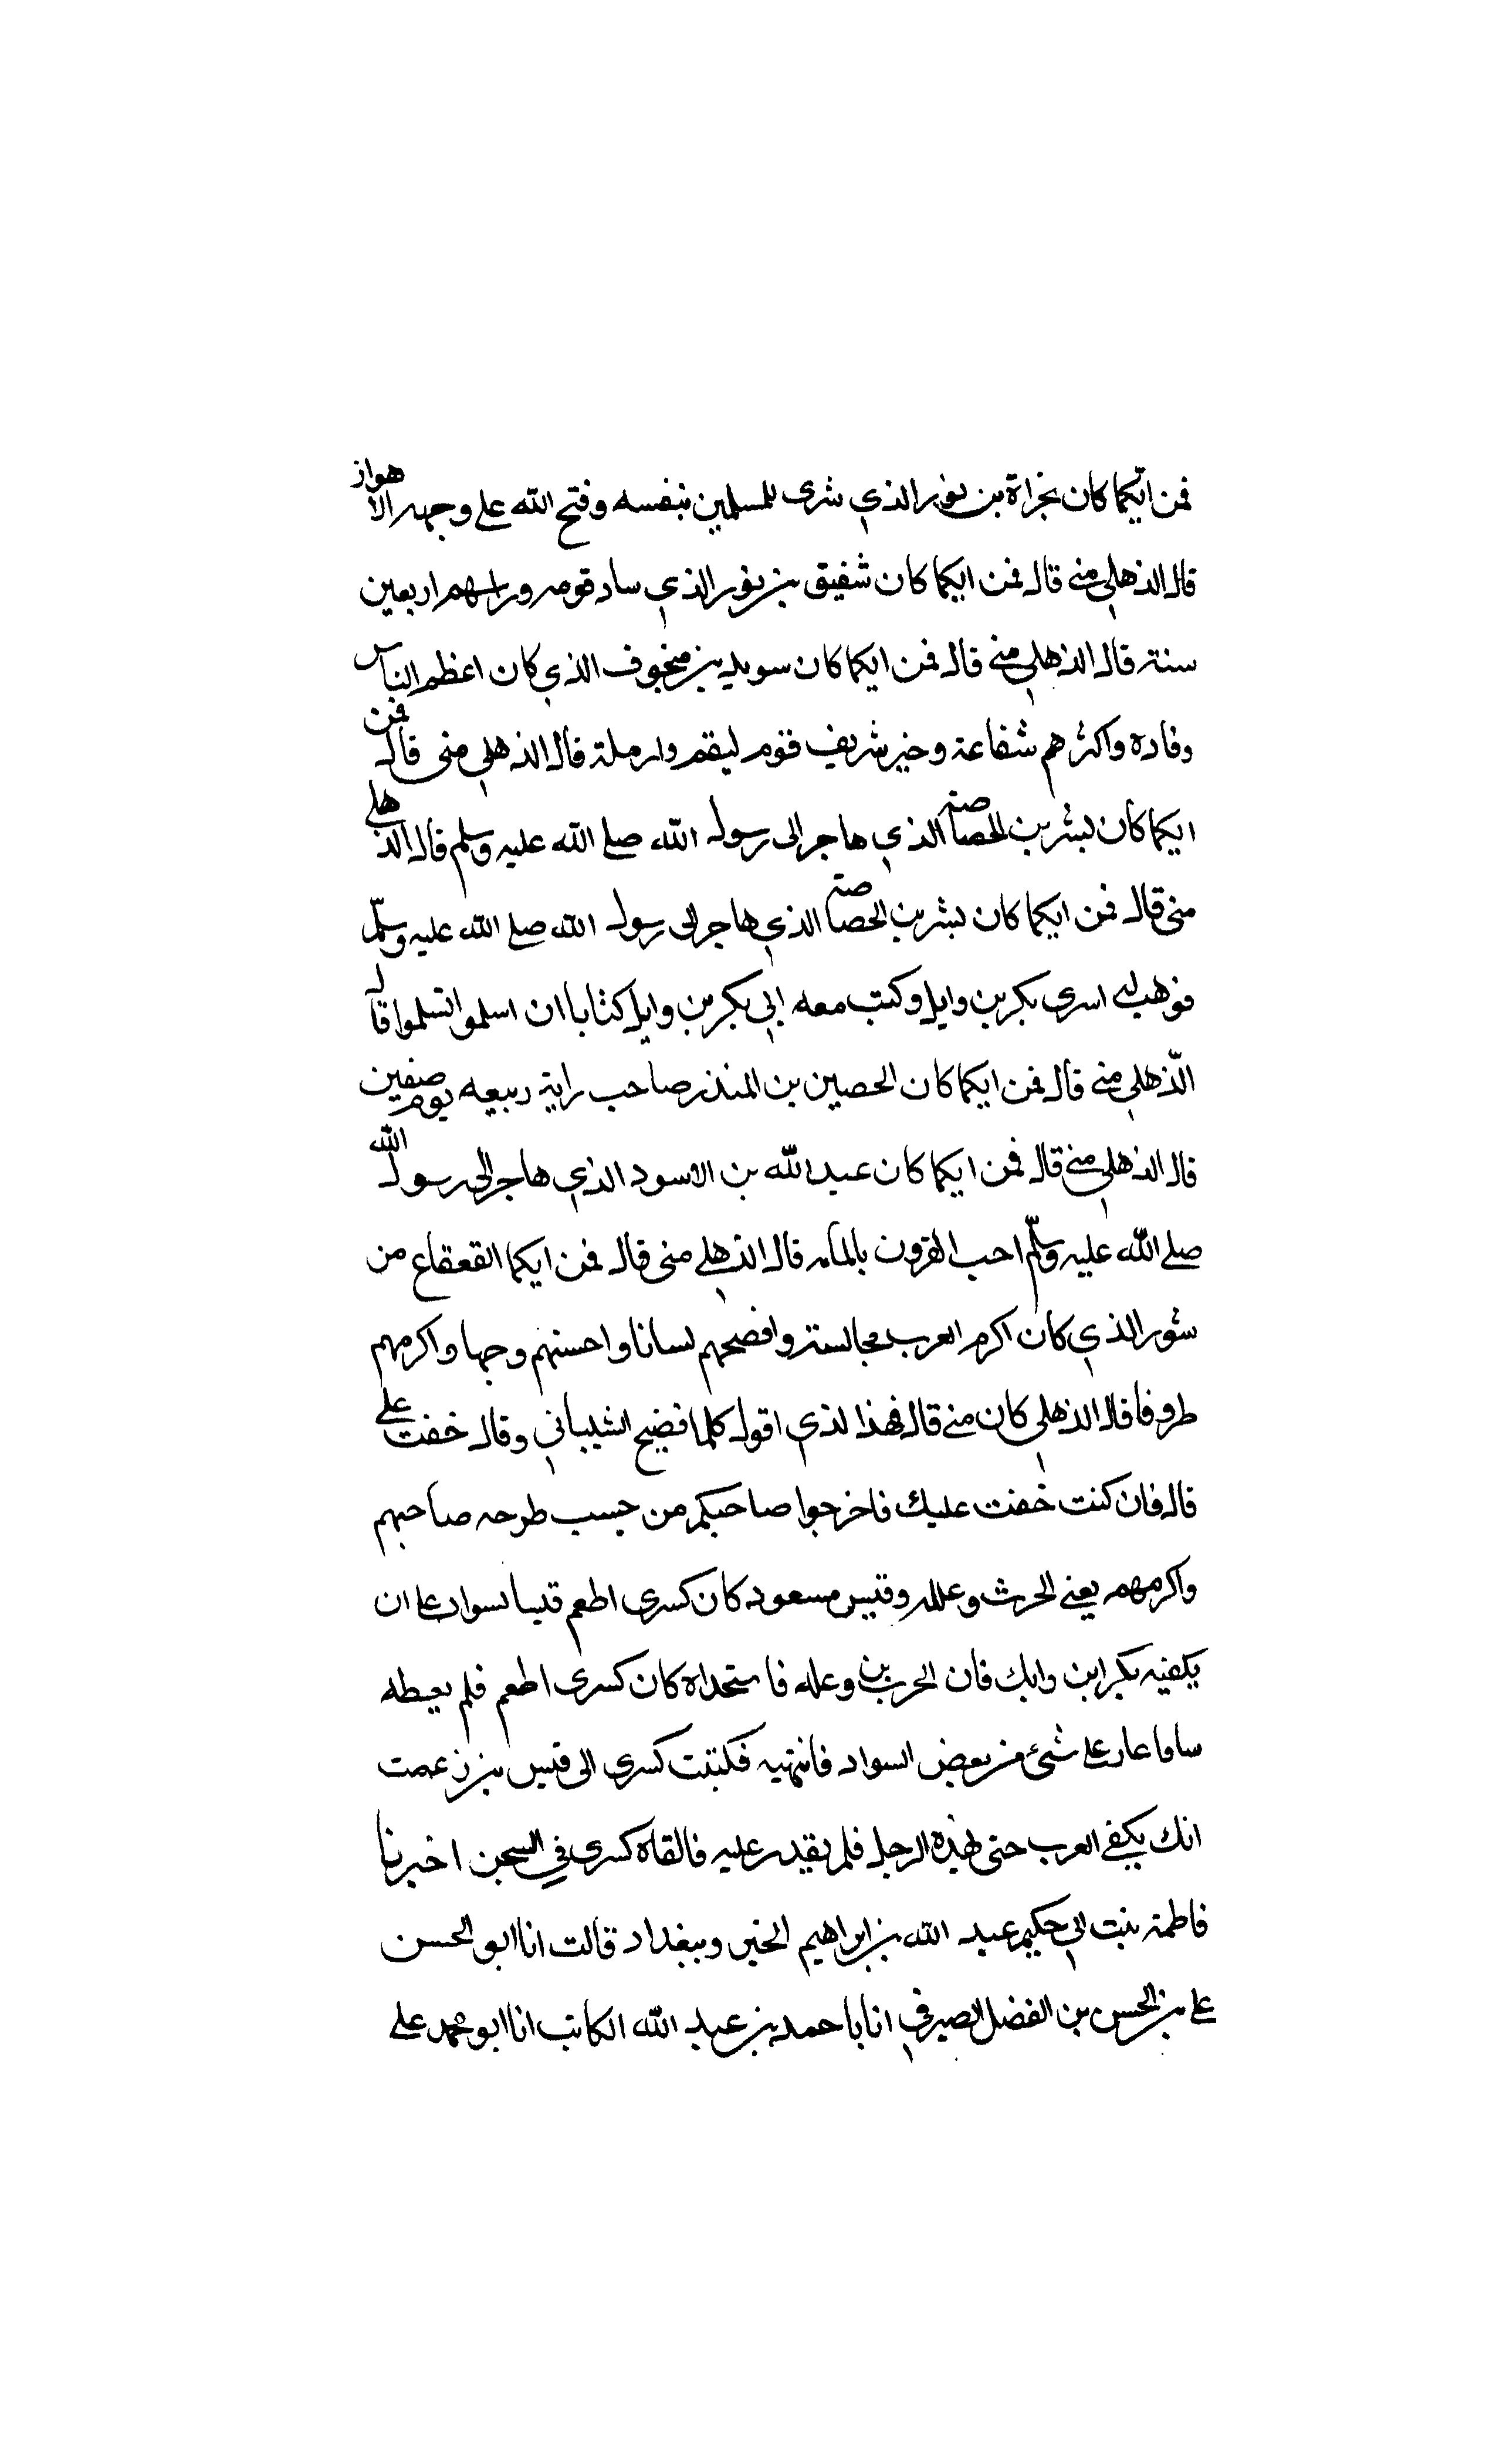 فمن ايكما كان مجزاة بن ثور الذي شرى للمسلمين بنفسه وفتح الله على وجهه الاهواز
قال الذهلي مني قال فمن ايكما كان شقيق بن ثور الذي ساد قومه وراسهم اربعين
سنة قال الذهلي مني قال فمن ايكما كان سويد بن منجوف الذي كان اعظم الناس
وفاده واكثرهم شفاعة وخير شريف قوم ليقم وارملة قال الذهلي مني قال فمن
ايكما كان بشر بن الخصاصية الذي هاجر الى رسول الله صلى الله عليه وسلم قال الذهلي
مني قال فمن ايكما كان بشر بن الخصاصية الذي هاجر الى رسول الله صلى الله عليه وسلم
فوهب له اسرى بكر بن وايل وكتب معه الي بكر بن وايل كتابا ان اسلموا تسلموا قال
الذهلي مني قال فمن ايكما كان الحصين بن المنذر صاحب راية ربيعه يوم صفين
قال الذهلي مني قال فمن ايكما كان عبد الله بن الاسود الذي هاجر الى رسول الله
صلى الله عليه وسلم احب القرون بالمامه قال الذهلي مني قال فمن ايكما القعقاع من
شور الذي كان اكرم العرب مجالسة وافصحهم لسانا واحسنهم وجها واكرمهم
طروفا قال الذهلي كان مني قال فهذا لذي اقول كلما فضيح الشيباني وقال خفت علي
قال فان كنت خفت عليك فاخرجوا صاحبكم من حبسب طرحه صاحبهم
واكرمهم يعني الحرث وعله وقيس مسعود كان كسرى اطعم قيسا بسواد على ان
يكفيه بكر ابن وايك فان الحرب بن وعله فاستحداه كان كسرى اطعم فلم يعطه
ساوا عار على شئ من بعض السواد فانتهيه فكتبت كسرى الى قيس بن زعمت
انك يكفي العرب حتى لهذه الرجل فلم يقدر عليه فالقاه كسرى في السجن اخبرنا
فاطمة بنت ابي حكيم عبد الله بن ابراهيم الخبري ببغداد قالت انا ابو الحسن
علي بن الحسن بن الفضل الصيرفي انا با احمد بن عبد الله الكاتب انا ابو محمد علي